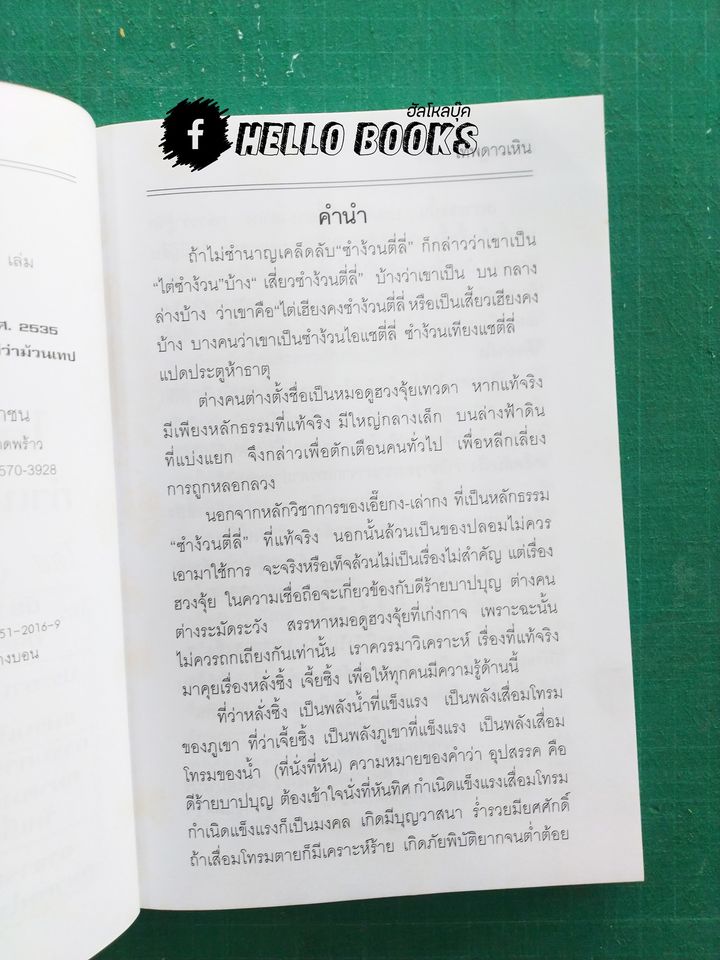 ฮัลโหลบุ๊ค
f HELLO BOOKS
เทพดาวเหิน
คำนำ
ถ้าไม่ชำนาญเคล็ดลับ“ซำง้วนตี่ลี่” ก็กล่าวว่าเขาเป็น
“ไต่ซำง้วน”บ้าง“ เสี่ยวซำง้วนตี่ลี่” บ้างว่าเขาเป็น บน กลาง
ล่างบ้าง ว่าเขาคือ“ไต่เฮียงคงซำง้วนตี่ลี่ หรือเป็นเสี้ยวเฮียงคง
บ้าง บางคนว่าเขาเป็นซำง้วนไอแซตี่ลี่ ซำง้วนเทียงแซตี่ลี่
แปดประตูห้าธาตุ
ต่างคนต่างตั้งชื่อเป็นหมอดูฮวงจุ้ยเทวดา หากแท้จริง
มีเพียงหลักธรรมที่แท้จริง มีใหญ่กลางเล็ก บนล่างฟ้าดิน
ที่แบ่งแยก จึงกล่าวเพื่อตักเตือนคนทั่วไป เพื่อหลีกเลี่ยง
การถูกหลอกลวง
นอกจากหลักวิชาการของเอี๊ยกง-เล่ากง ที่เป็นหลักธรรม
“ซำง้วนตี่ลี่” ที่แท้จริง นอกนั้นล้วนเป็นของปลอมไม่ควร
เอามาใช้การ จะจริงหรือเท็จล้วนไม่เป็นเรื่องไม่สำคัญ แต่เรื่อง
ฮวงจุ้ย ในความเชื่อถือจะเกี่ยวข้องกับดีร้ายบาปบุญ ต่างคน
ต่างระมัดระวัง สรรหาหมอดูฮวงจุ้ยที่เก่งกาจ เพราะฉะนั้น
ไม่ควรถกเถียงกันเท่านั้น เราควรมาวิเคราะห์ เรื่องที่แท้จริง
มาคุยเรื่องหลั่งซิ้ง เจี้ยซิ้ง เพื่อให้ทุกคนมีความรู้ด้านนี้
ที่ว่าหลั่งซิ้ง เป็นพลังน้ำที่แข็งแรง เป็นพลังเสื่อมโทรม
ของภูเขา ที่ว่าเจี้ยซิ้ง เป็นพลังภูเขาที่แข็งแรง เป็นพลังเสื่อม
โทรมของน้ำ (ที่นั่งที่หัน) ความหมายของคำว่า อุปสรรค คือ
ดีร้ายบาปบุญ ต้องเข้าใจนั่งที่หันทิศ กำเนิดแข็งแรงเสื่อมโทรม
กำเนิดแข็งแรงก็เป็นมงคล เกิดมีบุญวาสนา ร่ำรวยมียศศักดิ์
ถ้าเสื่อมโทรมตายก็มีเคราะห์ร้าย เกิดภัยพิบัติยากจนต่ำต้อย
เล่ม
ศ. 2535
570-3928
51-2016-9
างบอน